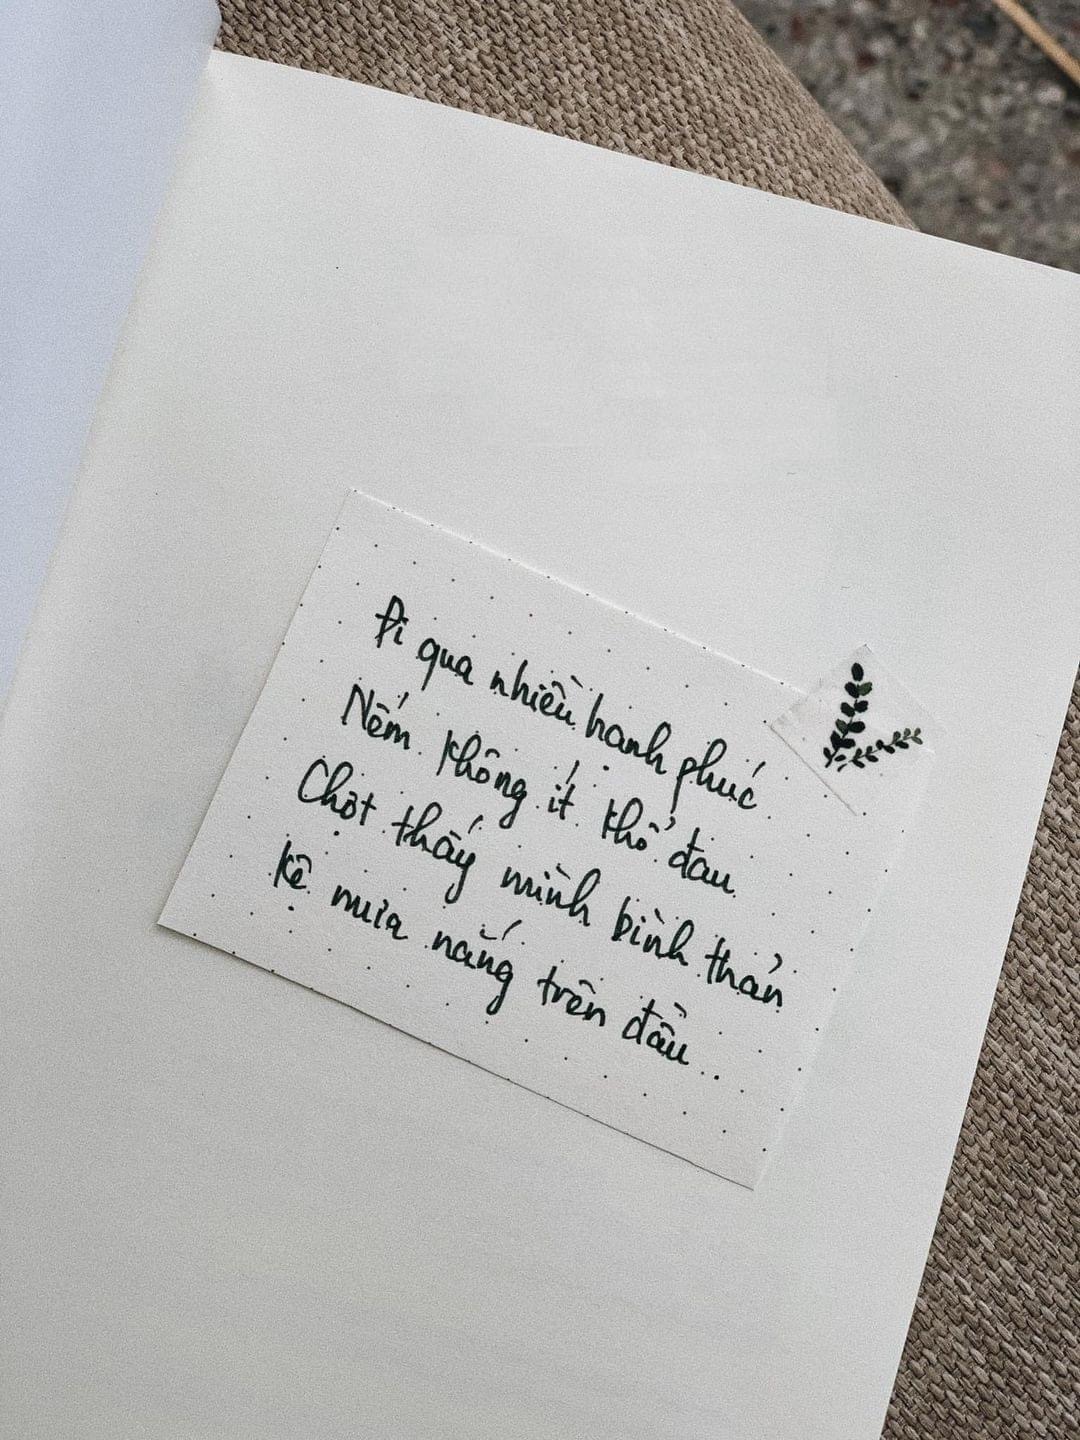 Đi qua nhiều hạnh phúc
Nếm không ít khổ đau
Chợt thấy mình bình thản
Kệ mưa nắng trên đầu...